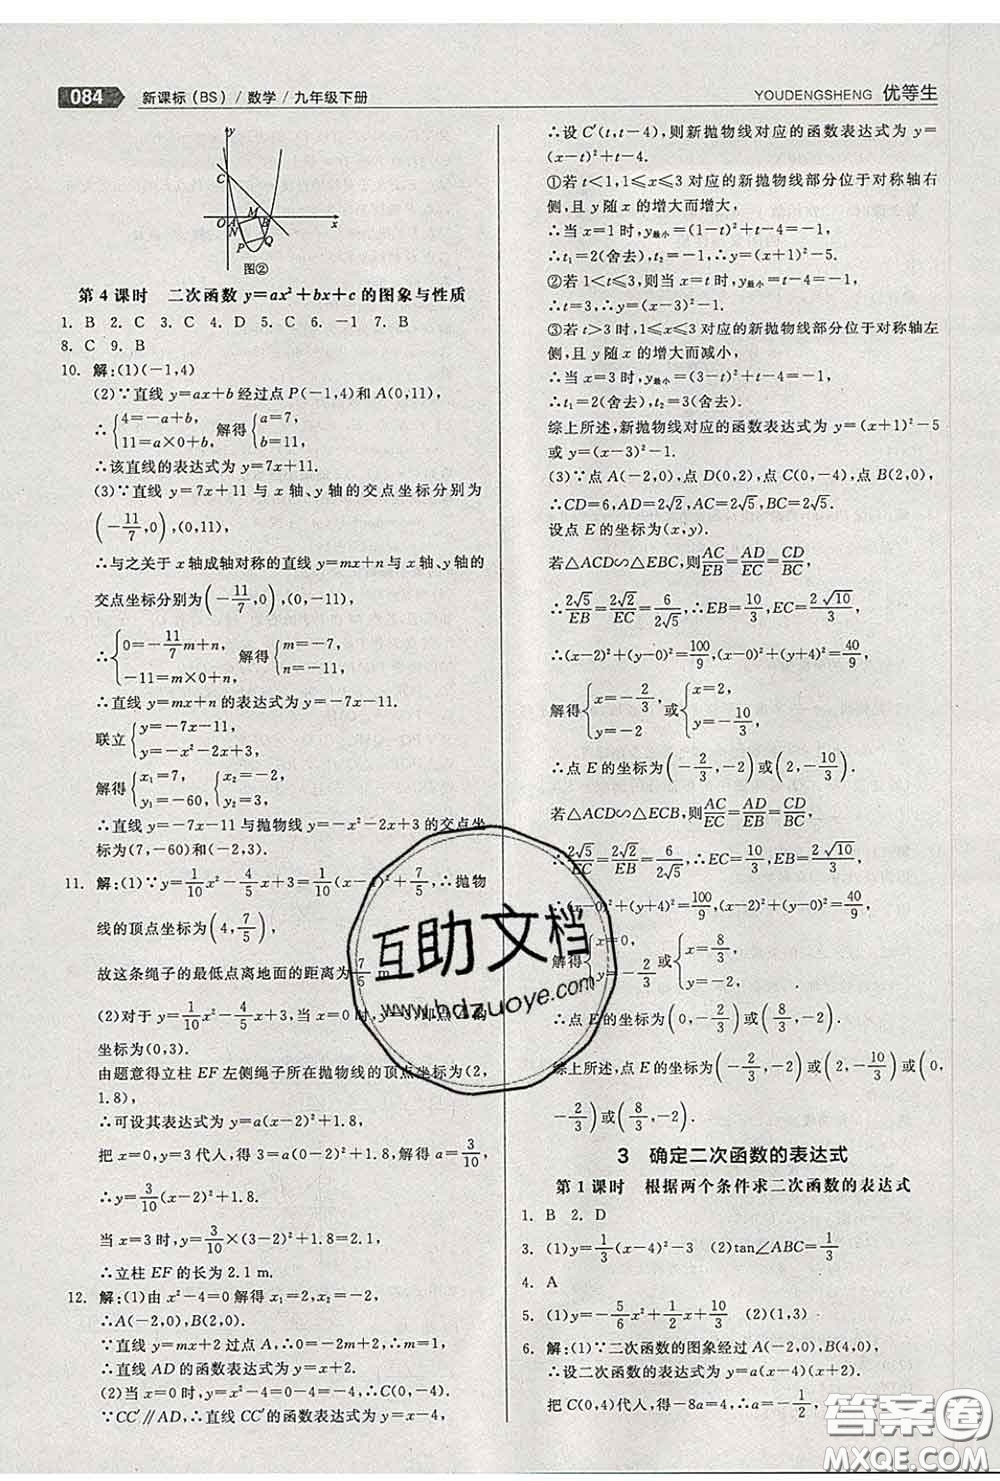 084 新课标(BS)/数学/九年级下册
YOUDENGSHENG 优等生
y
C
O A M B x
N
P Q
图②
第4课时 二次函数y=ax²+bx+c的图象与性质
1. B 2. C 3. C 4. D 5. C 6. -1 7. B
8. C 9. B
10. 解:(1)(-1,4)
(2)∵直线y=ax+b经过点P(-1,4)和A(0,11),
∴{4=-a+b, 11=a×0+b, 解得{a=7, b=11.
∴该直线的表达式为y=7x+11.
(3)∵直线y=7x+11与x轴、y轴的交点坐标分别为
(-11/7,0),(0,11),
∴与之关于x轴成轴对称的直线y=mx+n与x轴、y轴的
交点坐标分别为(-11/7,0),(0,-11),
∴{0=-11/7m+n, -11=m×0+n, 解得{m=-7, n=-11.
∴直线y=mx+n的表达式为y=-7x-11.
联立{y=-7x-11, y=-x²-2x+3,
解得{x₁=7, y₁=-60, {x₂=-2, y₂=3,
∴直线y=-7x-11与抛物线y=-x²-2x+3的交点坐
标为(7,-60)和(-2,3).
11. 解:(1)∵y=1/10x²-4/5x+3=1/10(x-4)²+7/5,∴抛物
线的顶点坐标为(4,7/5),
故这条绳子的最低点离地面的距离为7/5 m.
(2)对于y=1/10x²-4/5x+3,当x=0时,y=3,即点A的
坐标为(0,3).
由题意得立柱EF左侧绳子所在抛物线的顶点坐标为(2,
1.8),
∴可设其表达式为y=a(x-2)²+1.8,
把x=0,y=3代入,得3=a(0-2)²+1.8,解得a=3/10,
∴y=3/10(x-2)²+1.8,
当x=3时,y=3/10×(3-2)²+1.8=2.1,
∴立柱EF的长为2.1 m.
12. 解:(1)由x²-4=0解得x₁=2,x₂=-2,
∴A(-2,0),B(2,0).
∵直线y=mx+2过点A,∴-2m+2=0,∴m=1,
∴直线AD的函数表达式为y=x+2.
(2)当x=0时,y=x²-4=-4,∴C(0,-4).
∵CC′∥AD,∴直线CC′的函数表达式为y=x-4,
∴设C′(t,t-4),则新抛物线对应的函数表达式为y=
(x-t)²+t-4.
①若t<1,1≤x≤3对应的新抛物线部分位于对称轴右
侧,且y随x的增大而增大,
∴当x=1时,y最小=(1-t)²+t-4=-1,
∴t₁=2(舍去),t₂=-1,∴y=(x+1)²-5.
②若1≤t≤3,当x=t时,y最小=t-4=-1,
∴t=3,∴y=(x-3)²-1.
③若t>3时,1≤x≤3对应的新抛物线部分位于对称轴左
侧,且y随x的增大而减小,
∴当x=3时,y最小=(3-t)²+t-4=-1,
∴t₁=2(舍去),t₂=3(舍去).
综上所述,新抛物线对应的函数表达式为y=(x+1)²-5
或y=(x-3)²-1.
(3)∵点A(-2,0),点D(0,2),点C(0,-4),点B(2,0),
∴CD=6,AD=2√2,AC=2√5,BC=2√5.
设点E的坐标为(x,y).
若△ACD∽△EBC,则AC/EB=AD/EC=CD/BC,
∴2√5/EB=2√2/EC=6/2√5,∴EB=10/3,EC=2√10/3,
∴(x-2)²+(y-0)²=100/9,(x-0)²+(y+4)²=40/9,
解得{x=-2/3, y=-2 或{x=-2, y=-10/3,
∴点E的坐标为(-2/3,-2)或(-2,-10/3).
若△ACD∽△ECB,则AC/EC=AD/EB=CD/BC,
∴2√5/EC=2√2/EB=6/2√5,∴EC=10/3,EB=2√10/3,
∴(x-0)²+(y+4)²=100/9,(x-2)²+(y-0)²=40/9,
解得{x=0, y=-2/3 或{x=8/3, y=-2.
∴点E的坐标为(0,-2/3)或(8/3,-2).
综上所述,点E的坐标为(-2/3,-2)或(-2,-10/3)或(0,
-2/3)或(8/3,-2).
3 确定二次函数的表达式
第1课时 根据两个条件求二次函数的表达式
1. B 2. D
3. (1)y=1/3(x-4)²-3 (2)tan∠ABC=1/3
4. A
5. (1)y=-5/6x²+1/2x+10/3 (2)(1,3)
6. 解:(1)∵二次函数的图象经过A(-2,0),B(4,0),
∴设二次函数的表达式为y=a(x-4)(x+2).
把C(0,4)代入,得-8a=4,∴a=-1/2,
互助文档
www.hdzuoye.com
答案圈
MXQE.COM